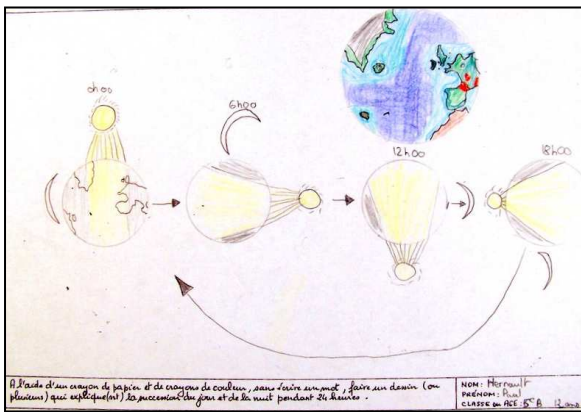 0h00
6h00
12h00
18h00
A l'aide d'un crayon de papier et de crayons de couleur, sans écrire un mot, faire un dessin (ou
plusieurs) qui explique(nt) la succession du jour et de la nuit pendant 24 heures.
NOM: Hernault
PRÉNOM: Paul
CLASSE ou AGE: 5e A 12 ans